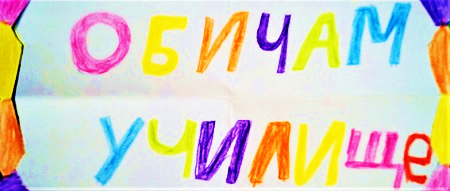 ОБИЧАМ
УЧИЛИЩе